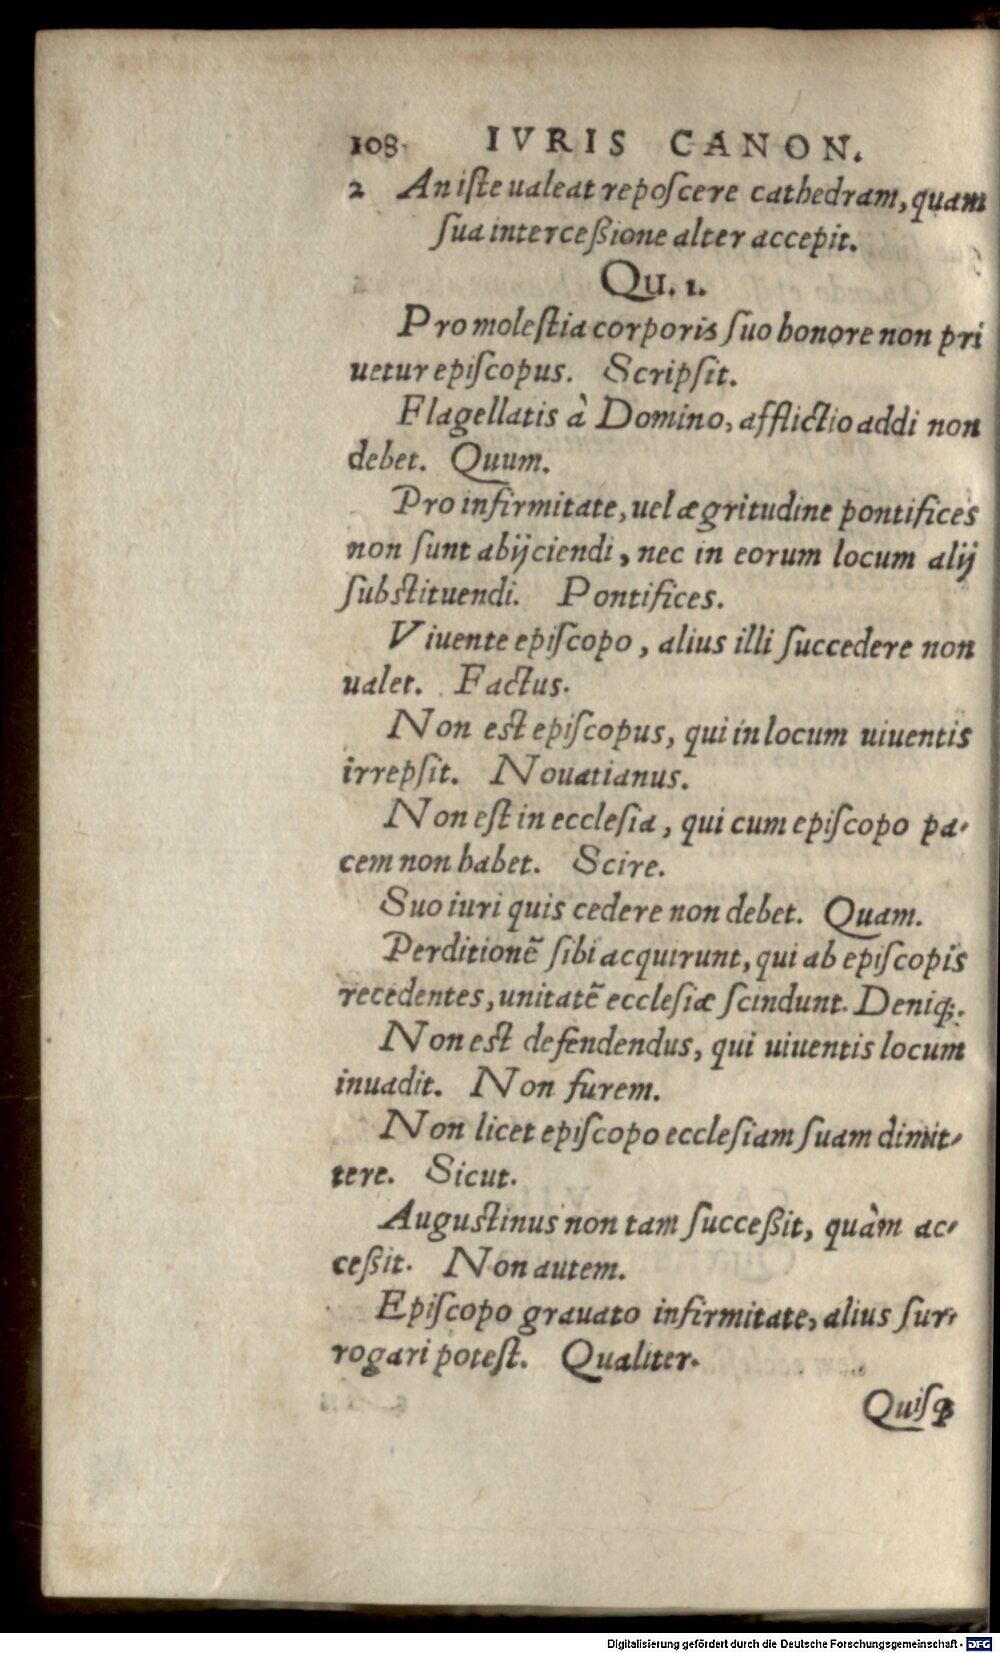 108 IVRIS CANON.
2 An iſte ualeat repoſcere cathedram, quam
ſua interceßione alter accepit.
Qu. 1.
Pro moleſtia corporis ſuo honore non pri
uetur epiſcopus. Scripſit.
Flagellatis à Domino, afflictio addi non
debet. Quum.
Pro infirmitate, uel ægritudine pontifices
non ſunt abijciendi, nec in eorum locum alij
ſubſtituendi. Pontifices.
Viuente epiſcopo, alius illi ſuccedere non
ualet. Factus.
Non eſt epiſcopus, qui in locum uiuentis
irrepſit. Nouatianus.
Non eſt in eccleſia, qui cum epiſcopo pa-
cem non habet. Scire.
Suo iuri quis cedere non debet. Quam.
Perditionẽ ſibi acquirunt, qui ab epiſcopis
recedentes, unitatẽ eccleſiæ ſcindunt. Deniq;.
Non eſt defendendus, qui uiuentis locum
inuadit. Non furem.
Non licet epiſcopo eccleſiam ſuam dimit-
tere. Sicut.
Auguſtinus non tam ſucceßit, quàm ac-
ceßit. Non autem.
Epiſcopo grauato infirmitate, alius ſur-
rogari poteſt. Qualiter.
Quiſqꝫ
Digitalisierung gefördert durch die Deutsche Forschungsgemeinschaft - DFG